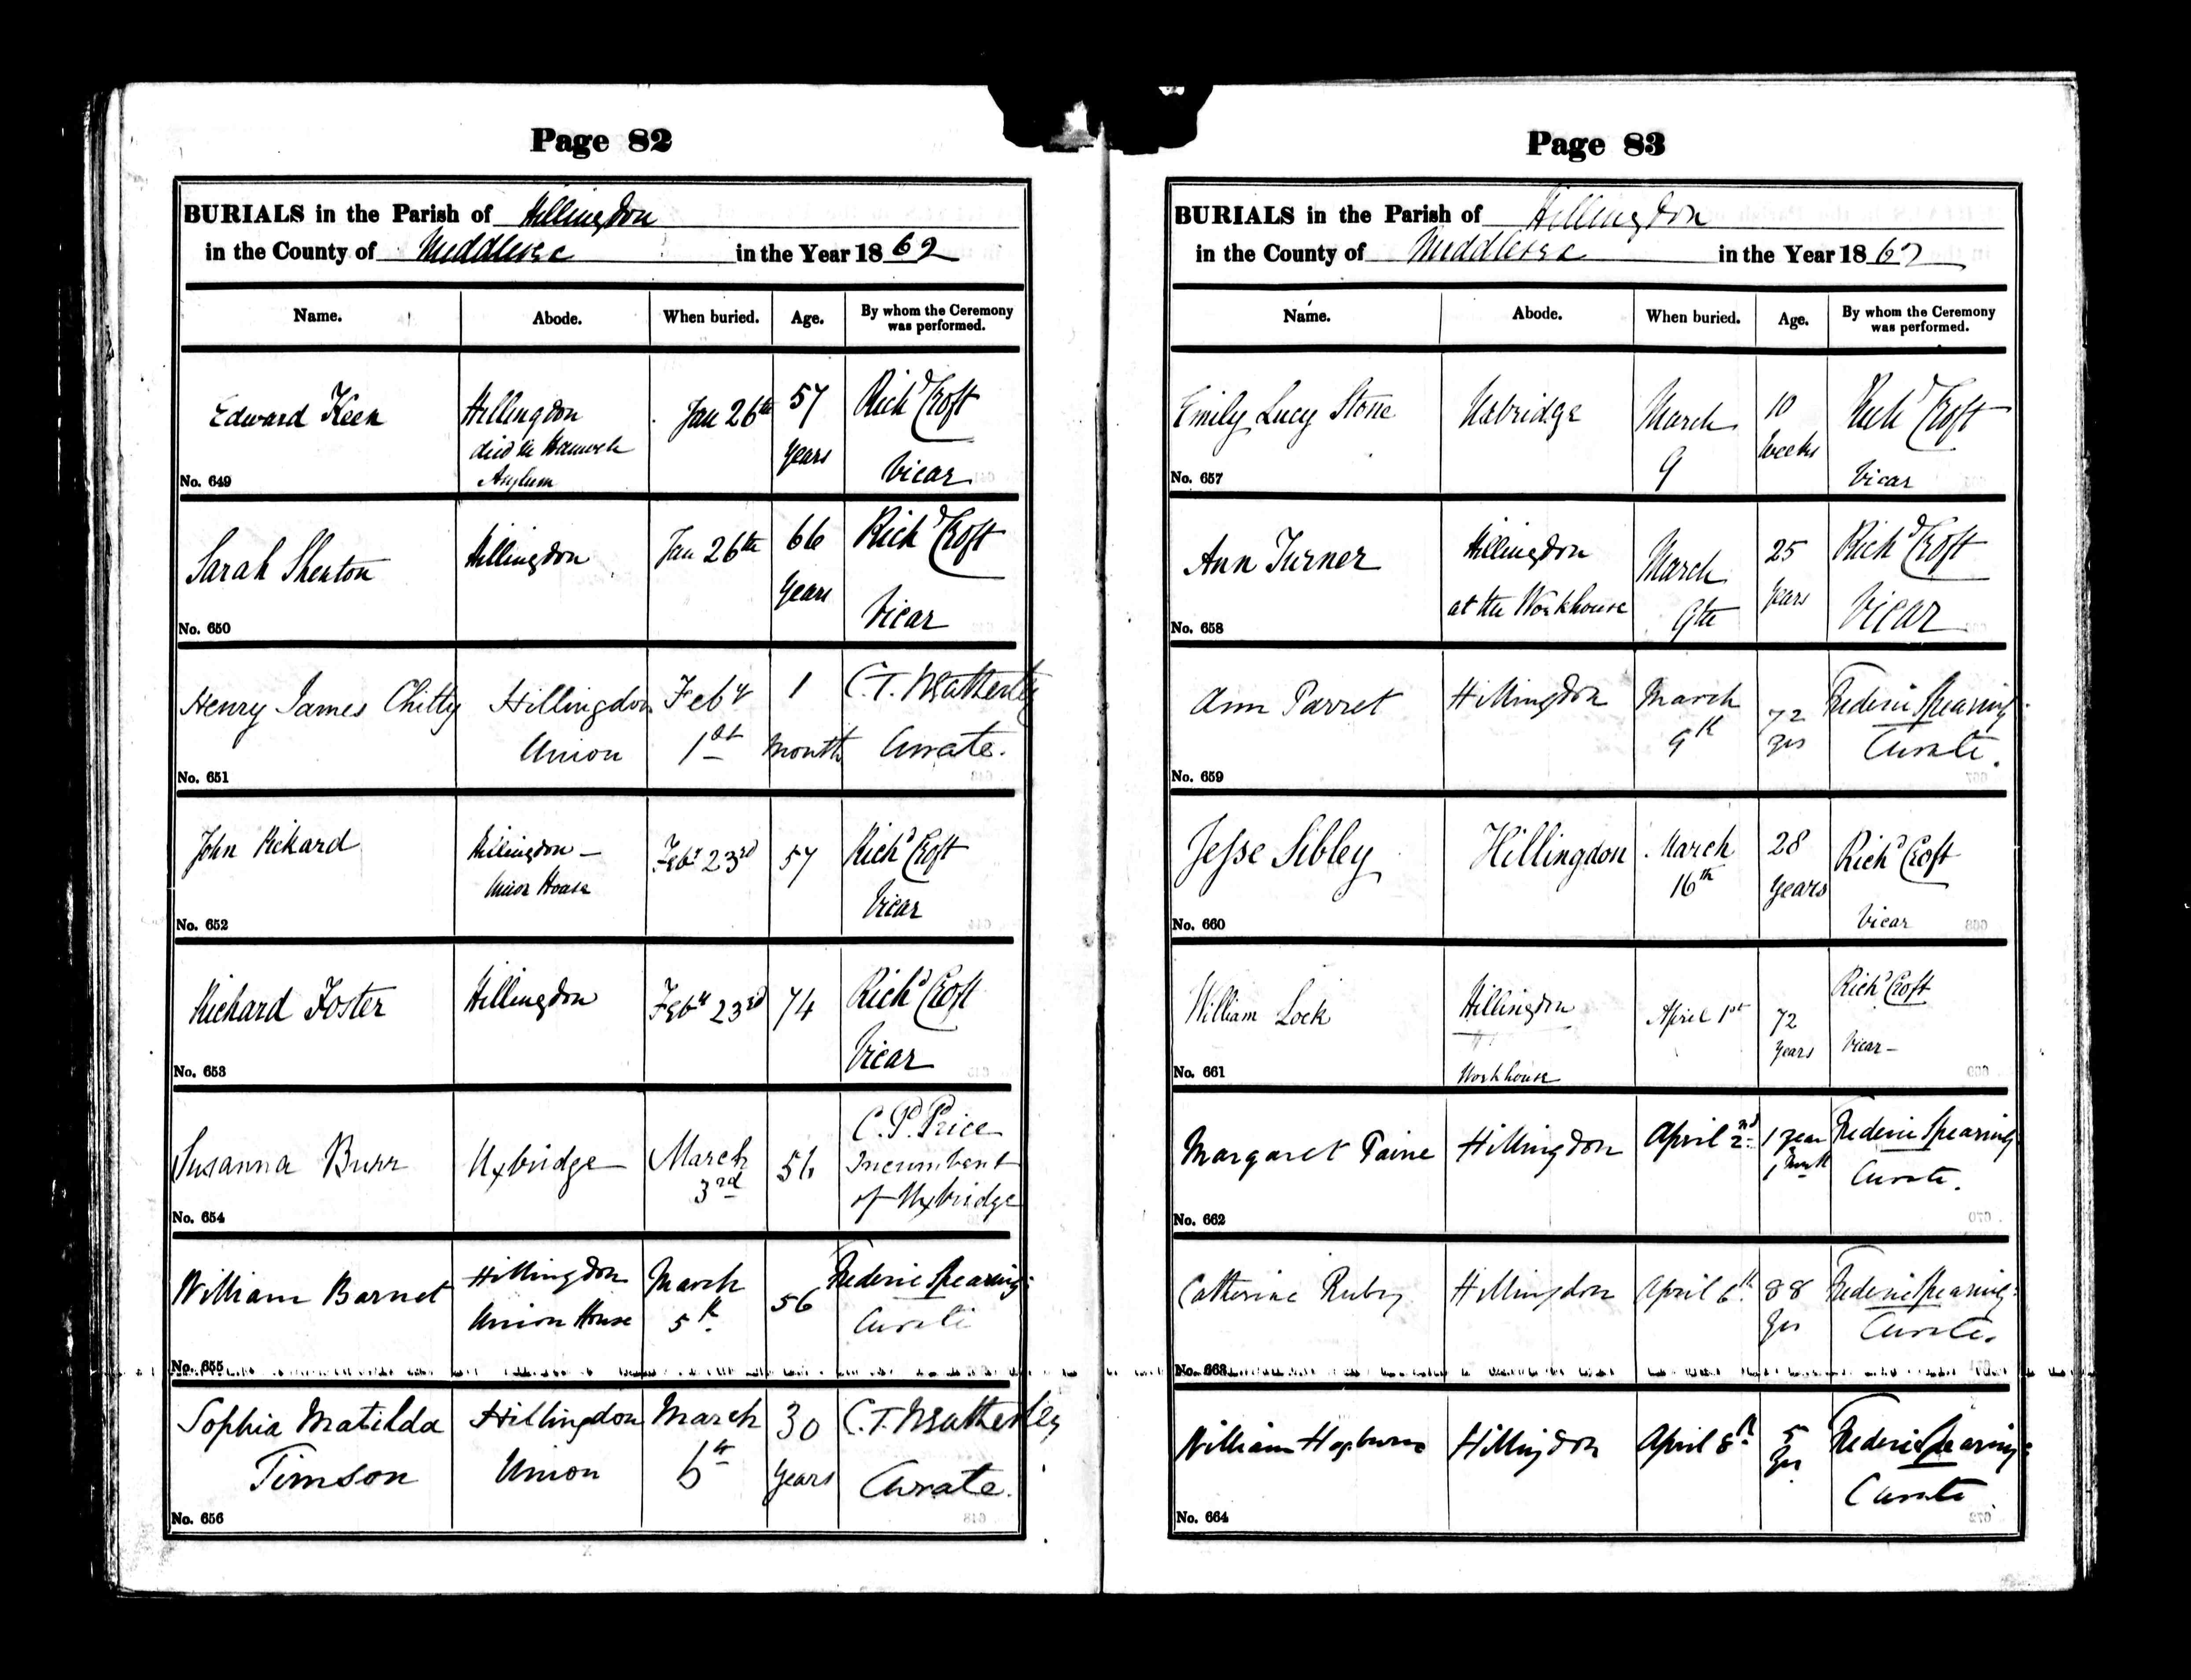 Page 82
BURIALS in the Parish of Hillingdon
in the County of Middlesex in the Year 1862
Name. Abode. When buried. Age. By whom the Ceremony was performed.
Edward Keen Hillingdon Jan 26th 57 Richd Croft
died in Hanwell years
Asylum Vicar
No. 649
Sarah Shenton Hillingdon Jan 26th 66 Richd Croft
years
Vicar
No. 650
Henry James Chitty Hillingdon Feby 1 C. T. Weatherley
Union 1st month Curate.
No. 651
John Rickard Hillingdon – Feby 23rd 57 Richd Croft
Union House Vicar
No. 652
Richard Foster Hillingdon Feby 23rd 74 Richd Croft
Vicar
No. 653
Susanna Burr Uxbridge March 56 C. P. Price
3rd Incumbent
of Uxbridge
No. 654
William Barnet Hillingdon March 56 Frederic Spearing
Union House 5th Curate
No. 655
Sophia Matilda Hillingdon March 30 C. T. Weatherley
Timson Union 6th years Curate.
No. 656
Page 83
BURIALS in the Parish of Hillingdon
in the County of Middlesex in the Year 1862
Name. Abode. When buried. Age. By whom the Ceremony was performed.
Emily Lucy Stone Uxbridge March 10 Richd Croft
9 weeks Vicar
No. 657
Ann Turner Hillingdon March 25 Richd Croft
at the Workhouse 9th years Vicar
No. 658
Ann Parret Hillingdon March 72 Frederic Spearing
9th yrs Curate.
No. 659
Jesse Sibley Hillingdon March 28 Richd Croft
16th years
Vicar
No. 660
William Lock Hillingdon April 1st 72 Richd Croft
years Vicar –
Workhouse
No. 661
Margaret Paine Hillingdon April 2nd 1 year Frederic Spearing
1 Month Curate.
No. 662
Catherine Ruby Hillingdon April 6th 88 Frederic Spearing
yrs Curate.
No. 663
William Hepburn Hillingdon April 8th 5 Frederic Spearing
yrs Curate
No. 664